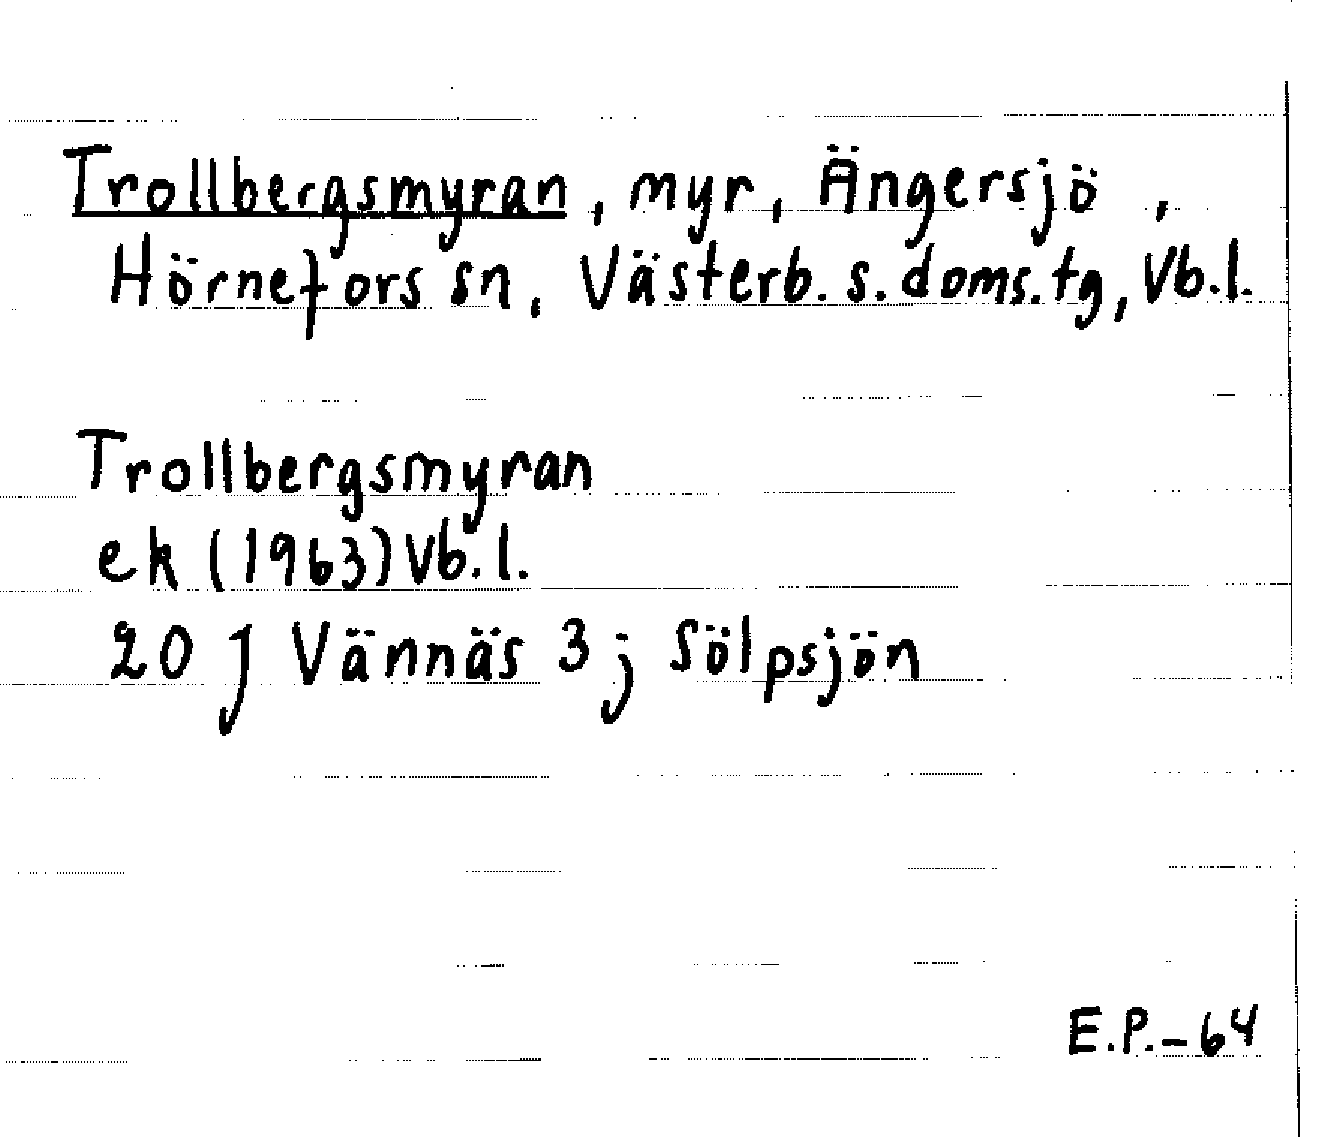 Trollbergsmyran, myr, Ängersjö,
Hörnefors sn, Västerb. s. doms. tg, Vb.l.
Trollbergsmyran
ek (1963) Vb.l.
20 J Vännäs 3 j Sölpsjön
E.P.-64